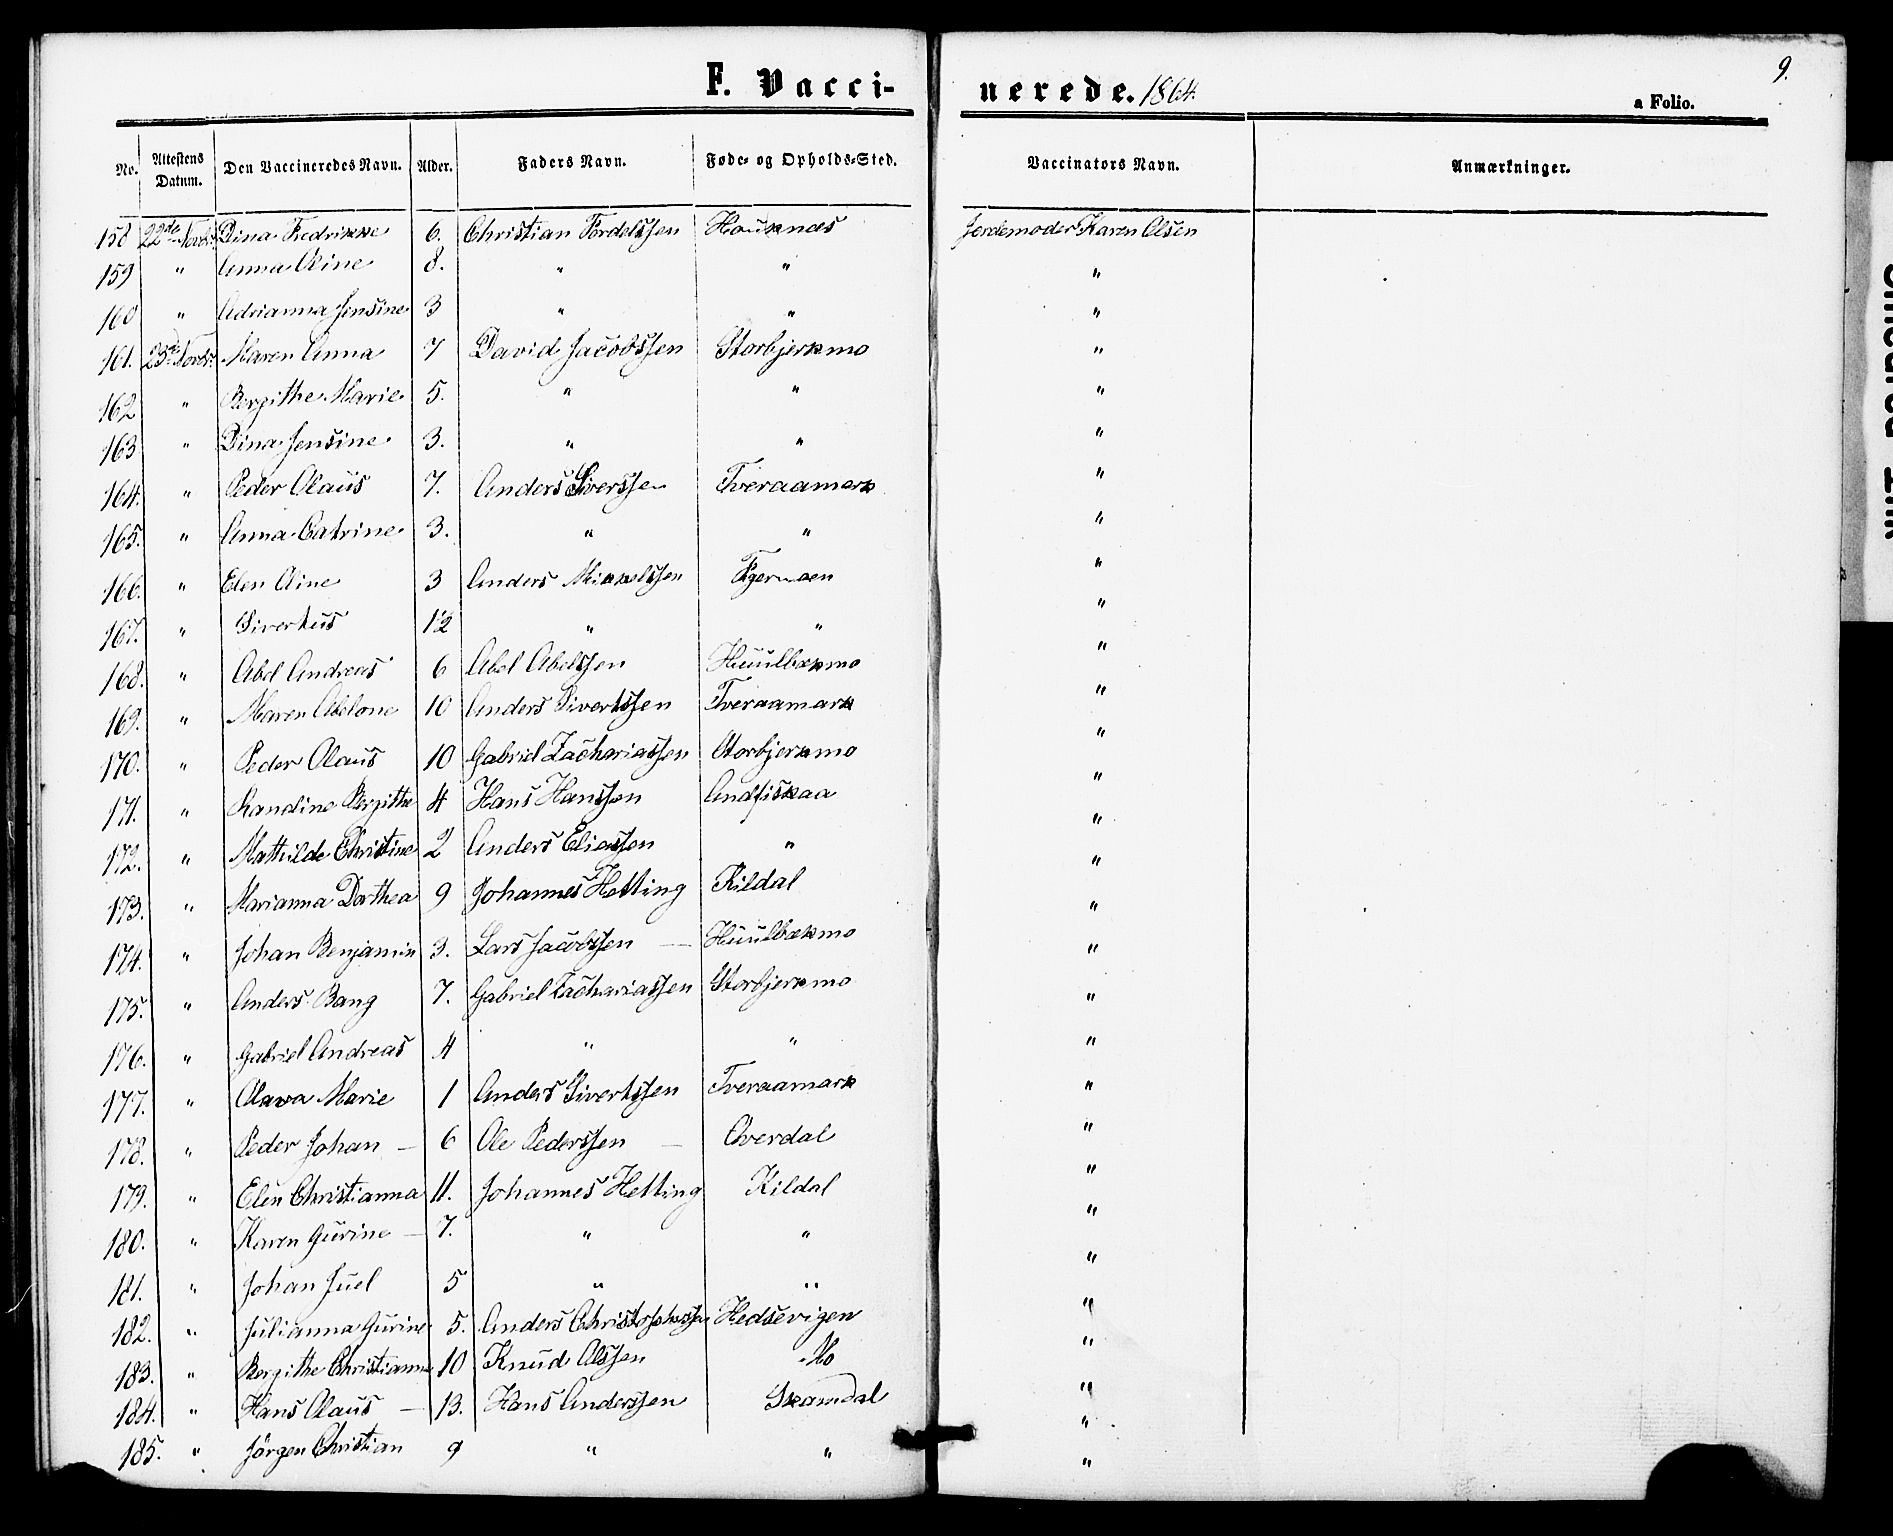 F. Vaccinerede. 1864.
9.
a Folio.
No. Attestens Datum. Den Vaccineredes Navn. Alder. Faders Navn. Føde- og Opholds-Sted. Vaccinators Navn. Anmærkninger.
158 22de Novbr. Dina Fredrikke 6. Christian Tordelssen Hauknæs Jordemoder Karen Olsen
159 " Anna Oline 8. " " "
160 " Adrianna Jensine 3 " " "
161. 23de Novbr. Maren Anna 7 David Jacobssen Storbjerkmo "
162 " Bergithe Marie 5. " " "
163 " Dina Jensine 3. " " "
164. " Peder Olaus 7. Anders Siverssen Tveraamark "
165. " Anna Catrine 3. " " "
166. " Elen Oline 3 Anders Mikkelssen "
167. " Sivertus 12 " " "
168. " Abel Andreas 6 Abel Abelssen Huulbækmo "
169. " Maren Abelone 10 Anders Sivertssen Tveraamark "
170. " Peder Olaus 10 Gabriel Zachariassen Storbjerkmo "
171. " Bergithe 4 Hans Hanssen Andfiskaa "
172. " Mathilde Christine 2 Anders Eliassen " "
173. " Marianna Dorthea 9 Johannes Hetting Kildal "
174. " Johan Benjamin 3. Lars Jacobssen — Huulbækmo "
175. " Anders Bang 7. Gabriel Zachariassen Storbjerkmo "
176. " Gabriel Andreas 4 " " "
177. " Olava Marie 1 Anders Sivertssen Tveraamark "
178. " Peder Johan — 6 Ole Pederssen — Overdal "
179. " Elen Christianna 11. Johannes Hetting Kildal "
180. " Karen Gurine — 7. " " "
181. " Johan Juel 5 " " "
182. " Julianna Gurine 5. Anders Christophersen Hedsevigen "
183. " Bergithe Christianna 10 Knud Olssen Mo "
184. " Hans Olaus — 13. Hans Anderssen Skamdal "
185. " Jörgen Christian 9 " " "